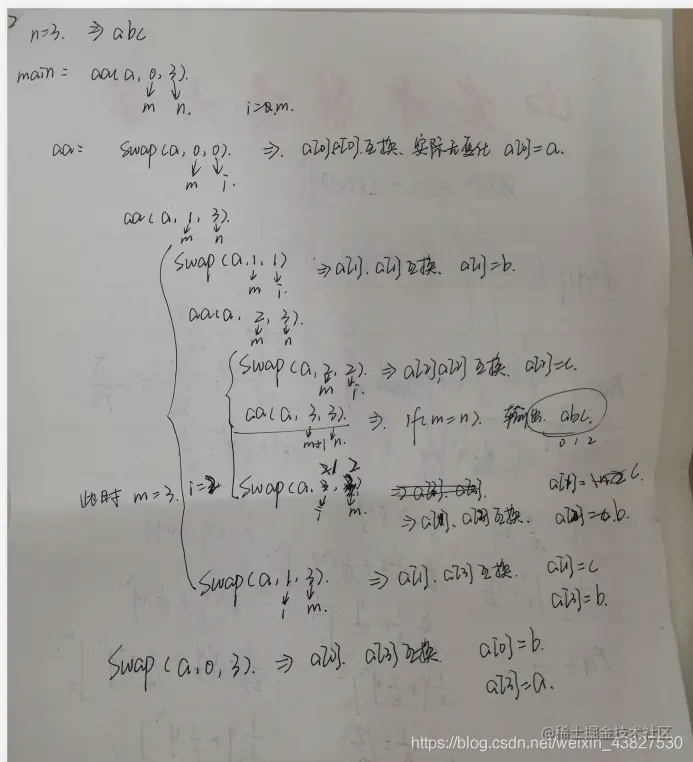 n=3. ⇒ abc
main = aa(a, 0, 3).
m n. i=m.
aa = Swap(a, 0, 0). ⇒ a[0]a[0]互换、实际无变化 a[0]=a.
m i.
aa(a, 1, 3).
m n
Swap(a, 1, 1) ⇒ a[1]、a[1]互换、 a[1]=b.
m i.
aa(a, 2, 3).
m n
Swap(a, 2, 2). ⇒ a[2]a[2]互换、 a[2]=c.
m i.
aa(a, 3, 3). ⇒ if(m=n). 输出 abc.
m+1 n. 0 1 2
此时 m=3. i=2 Swap(a, 1 2 a[1]= c.
i m. ⇒ a[1]、a[2]互换. a[2]= b.
Swap(a, 1, 3). ⇒ a[1]、a[3]互换. a[1]=c
i m. a[3]=b.
Swap(a, 0, 3). ⇒ a[0]. a[3]互换. a[0]=b.
a[3]=a.
@稀土掘金技术社区
https://blog.csdn.net/weixin_43827530